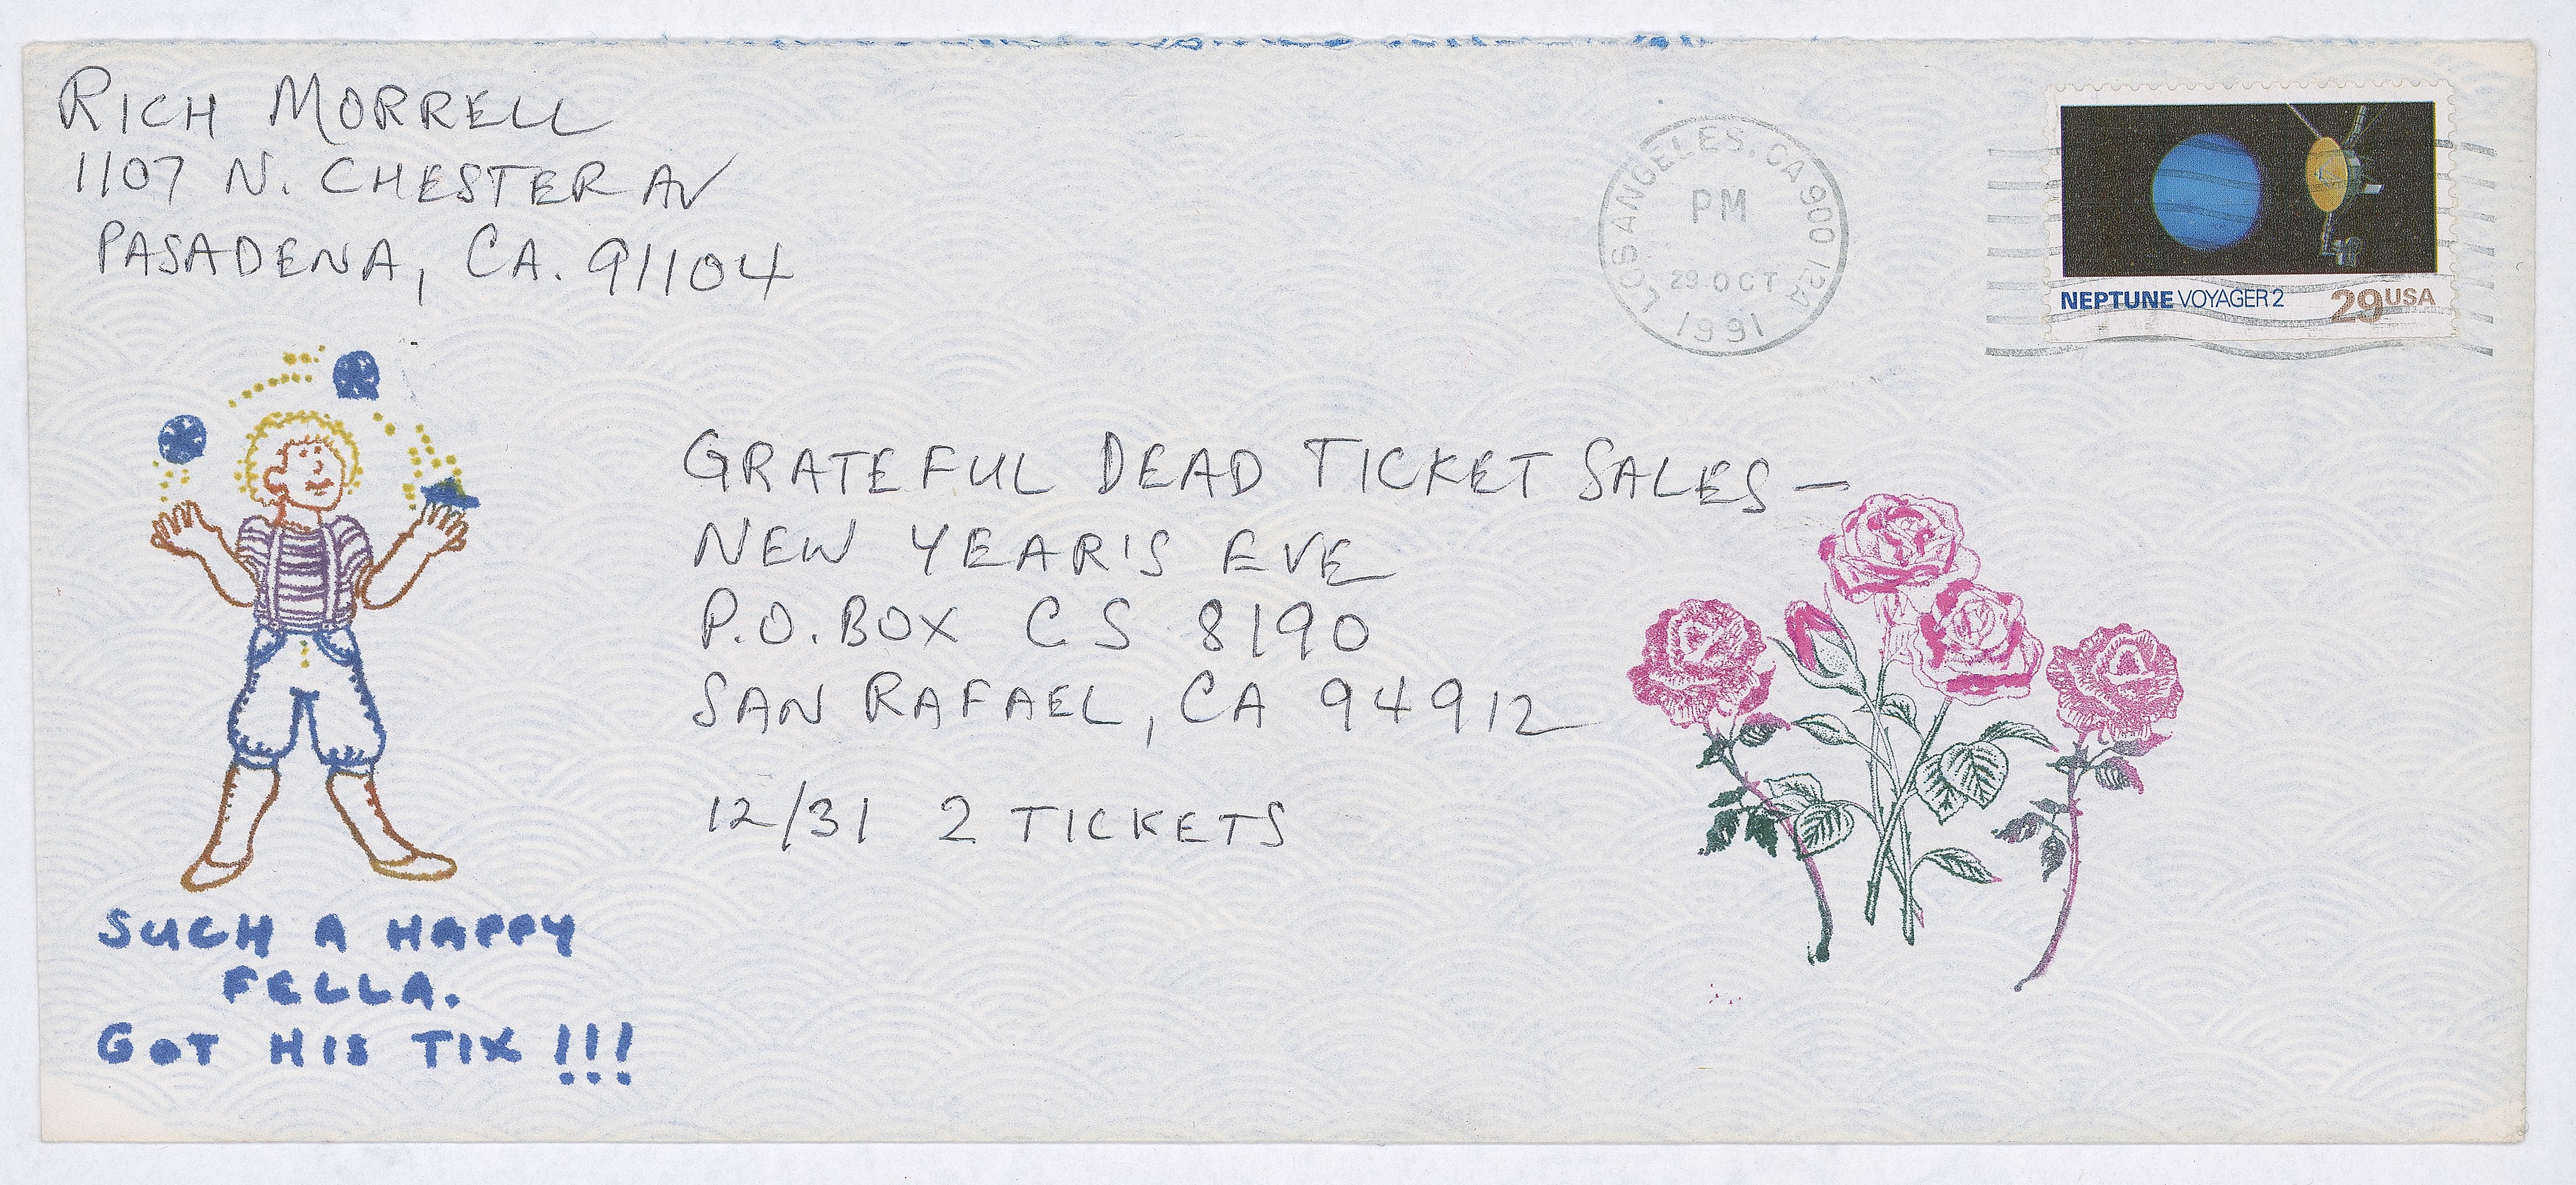 RICH MORRELL
1107 N. CHESTER AV
PASADENA, CA. 91104
LOS ANGELES, CA 900
PM
29 OCT
1991
NEPTUNE VOYAGER 2 29 USA
GRATEFUL DEAD TICKET SALES—
NEW YEAR'S EVE
P.O. BOX CS 8190
SAN RAFAEL, CA 94912
12/31 2 TICKETS
SUCH A HAPPY
FELLA.
GOT HIS TIX!!!